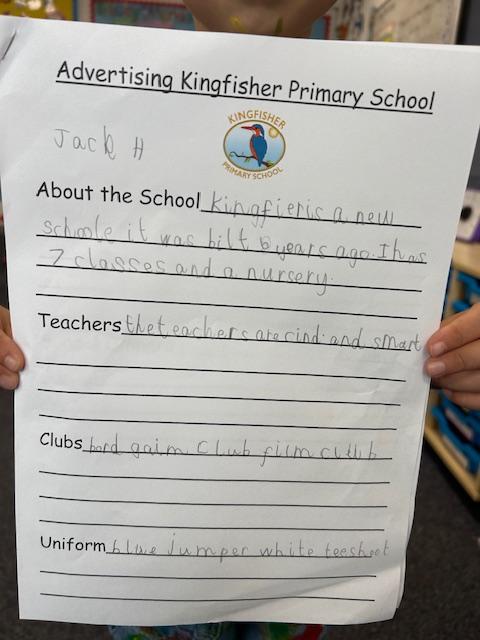 Advertising Kingfisher Primary School
KINGFISHER
PRIMARY SCHOOL
Jack H
About the School kingfieris a new
schoole it was bilt 6 years ago. Ihas
7 classes and a nursery.
Teachers the teachers are cind and smart
Clubs bord gaim club film club
Uniform blue jumper white teeshoot